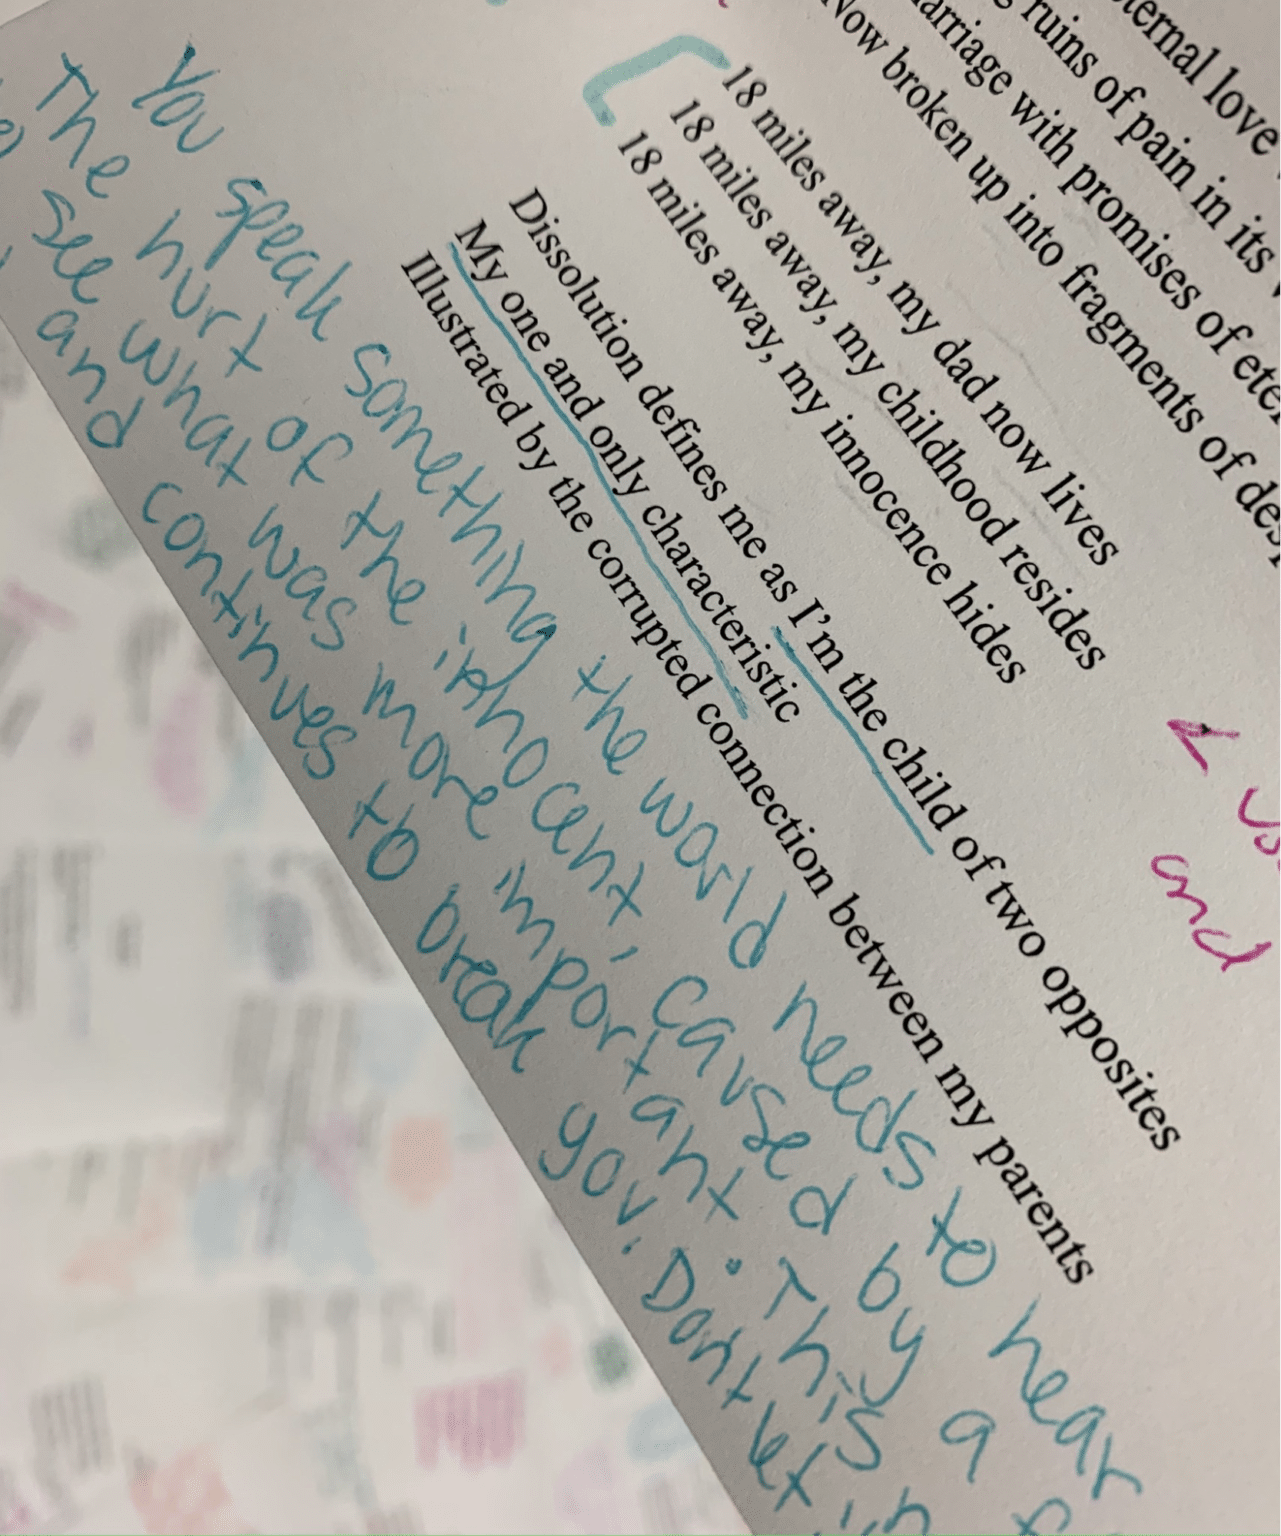 ternal love
ruins of pain in its
arriage with promises of eter
Now broken up into fragments of des
18 miles away, my dad now lives
18 miles away, my childhood resides
18 miles away, my innocence hides
Dissolution defines me as I'm the child of two opposites
My one and only characteristic
Illustrated by the corrupted connection between my parents
and
You speak something the world needs to hear
The hurt of the innocent, caused by a
see what was more important. This
and continues to break you. Dont let in